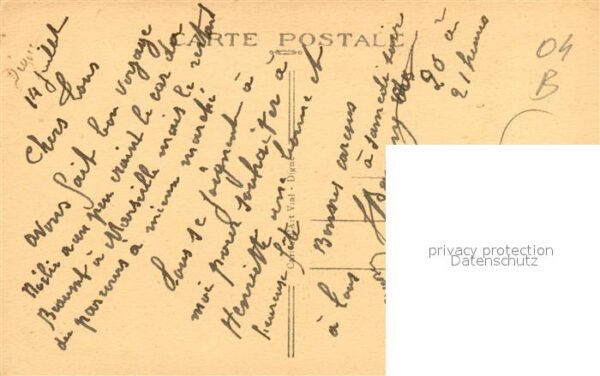 CARTE POSTALE
Digne
14 Juillet
Chers tous
avons fait bon voyage
Nélie a un peu craint le car de
Beaumt à Marseille mais le restant
du parcours a mieux marché
Tous se joignent à
moi pour souhaiter à
Henriette une bonne et
heureuse fête
Bonnes caresses
à tous
à samedi soir
20 à
21 heures
Art Vial - Digne
04
B
privacy protection
Datenschutz